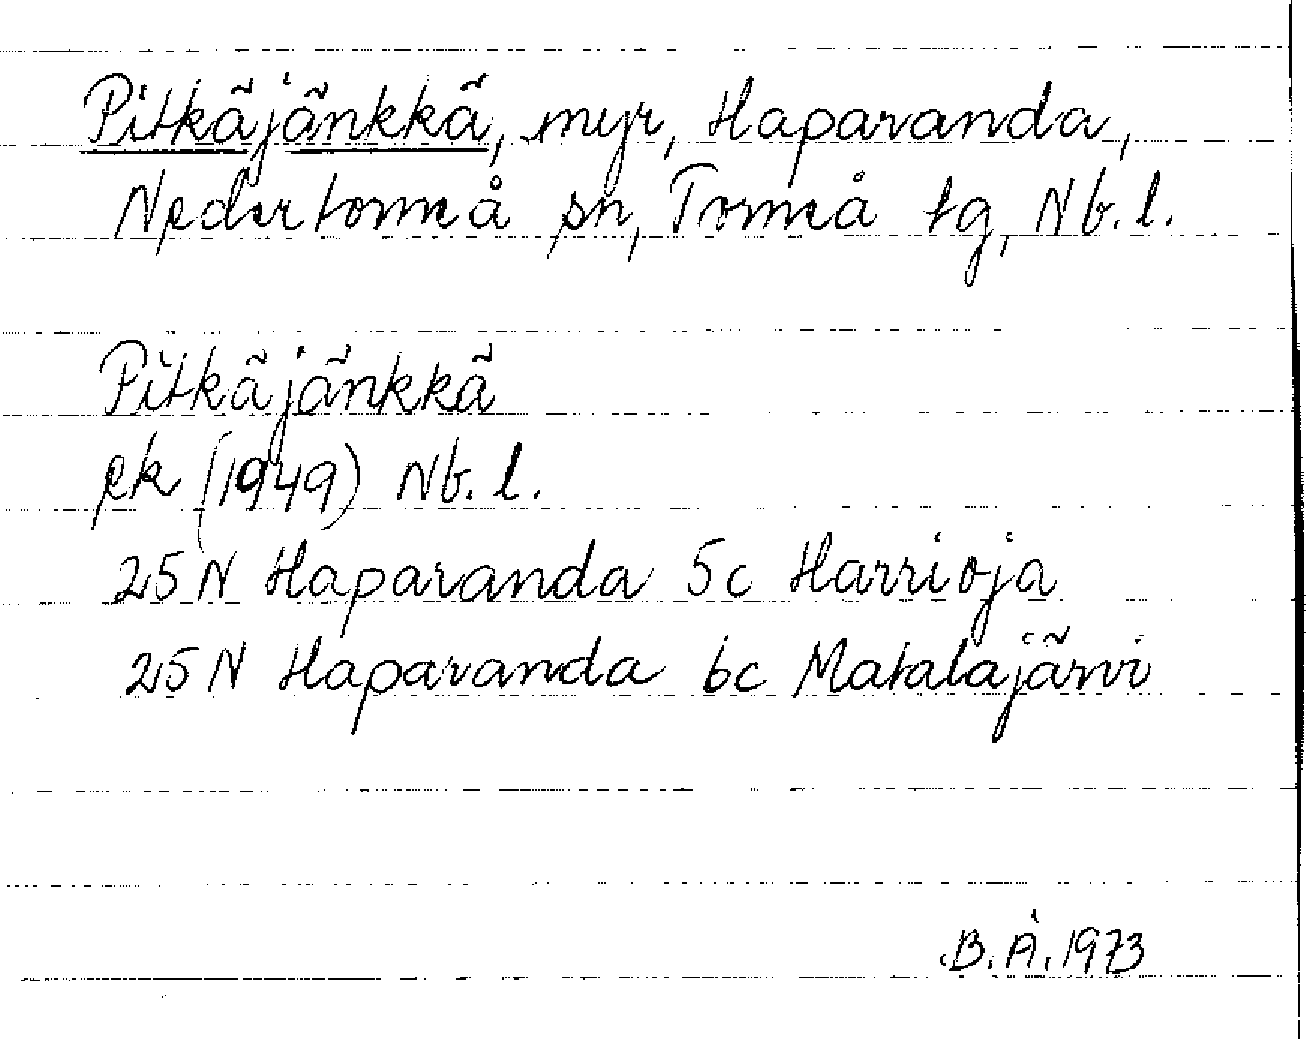 Pitkäjänkkä, myr, Haparanda,
Nedertorneå sn, Torneå tg, Nb. l.
Pitkäjänkkä
ek (1949) Nb. l.
25 N Haparanda 5c Harrioja
25 N Haparanda 6c Matalajärvi
B. Å. 1973